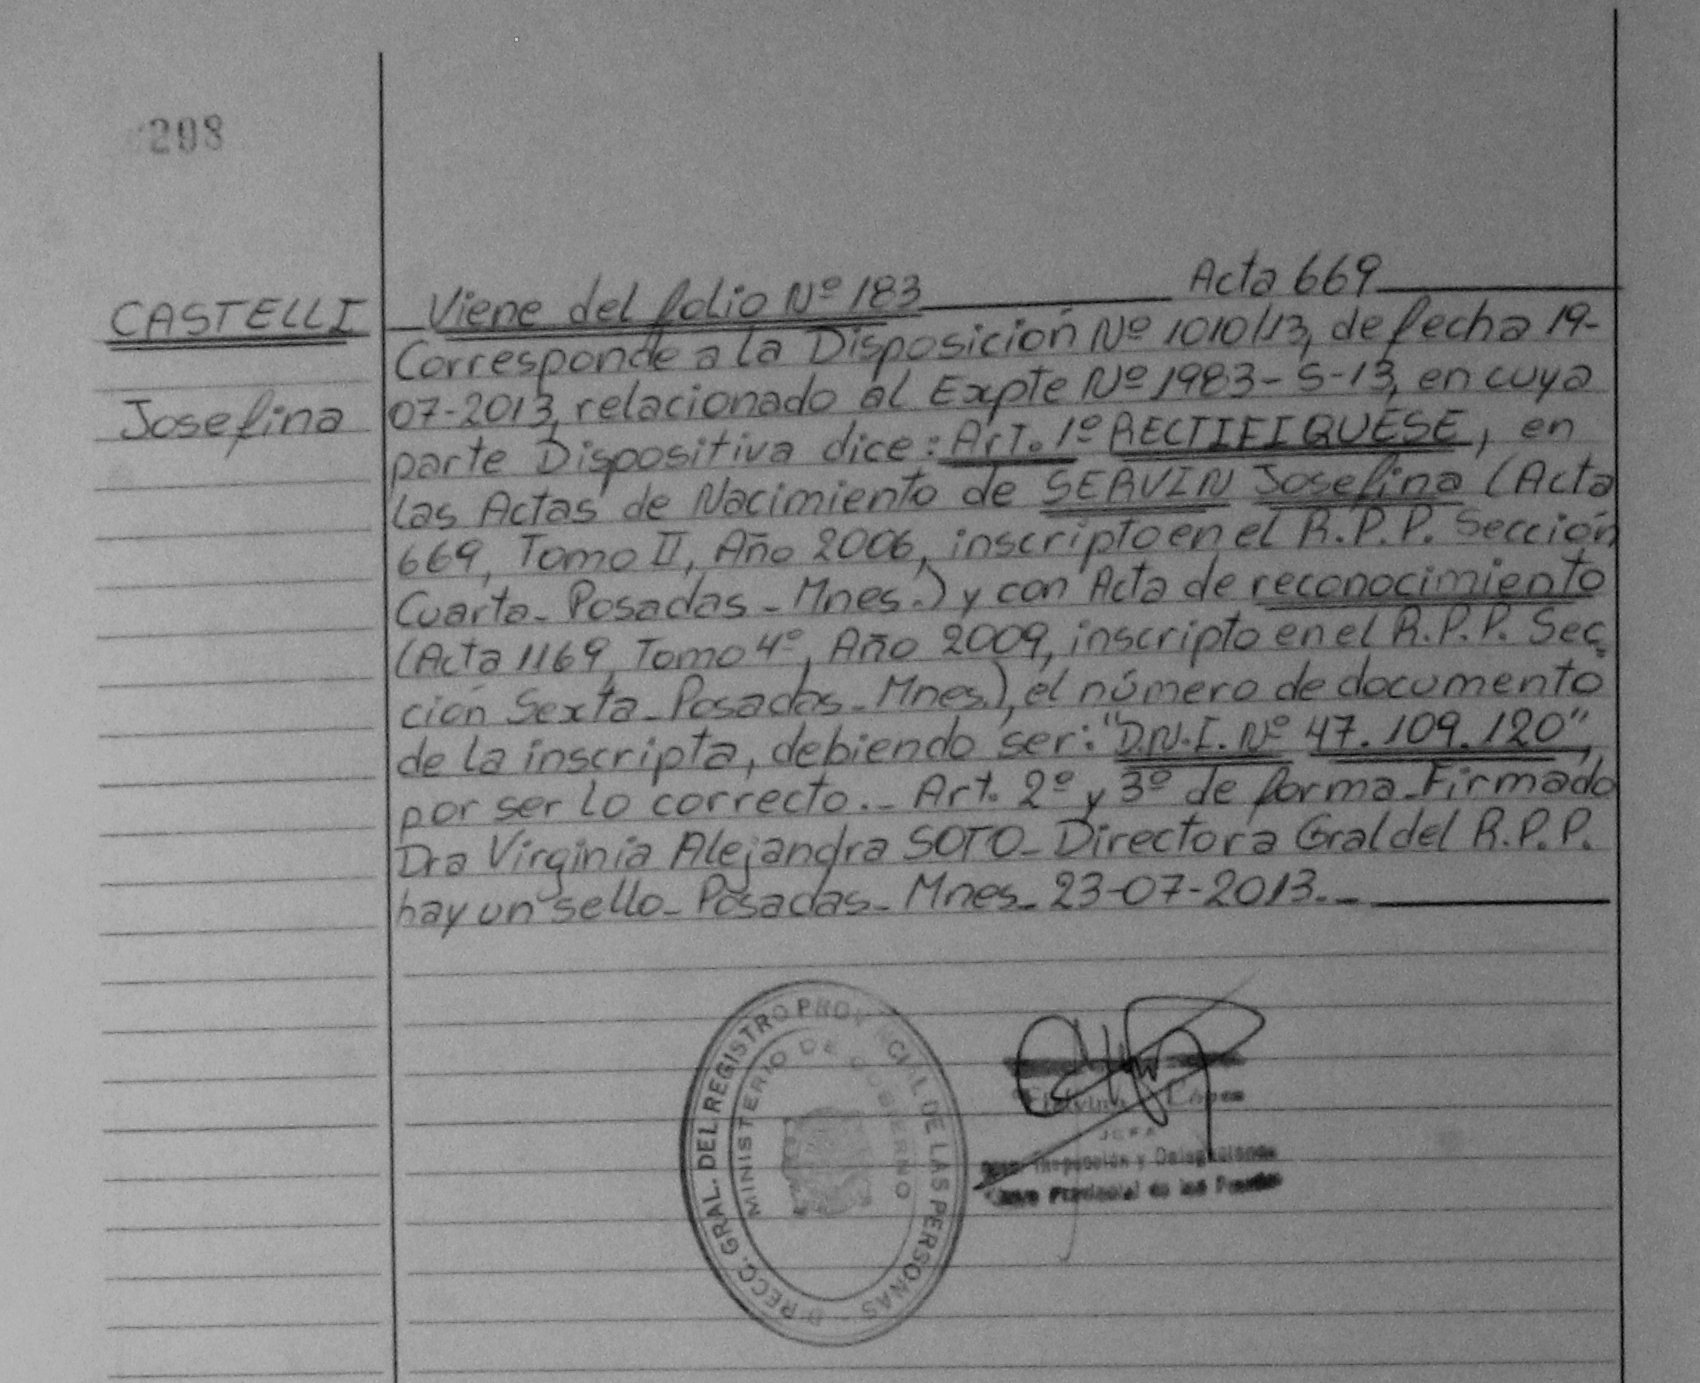 208
CASTELLI
Josefina
Viene del folio Nº 183 Acta 669
Corresponde a la Disposición Nº 1010/13, de fecha 19-
07-2013, relacionado al Expte Nº 1983-S-13, en cuya
parte Dispositiva dice: Art. 1º RECTIFIQUESE, en
las Actas de Nacimiento de SERVIN Josefina (Acta
669, Tomo II, Año 2006, inscripto en el R.P.P. Sección
Cuarta_ Posadas_ Mnes.) y con Acta de reconocimiento
(Acta 1169, Tomo 4º, Año 2009, inscripto en el R.P.P. Sec=
ción Sexta_ Posadas_ Mnes.), el número de documento
de la inscripta, debiendo ser: "D.N.I. Nº 47.109.120",
por ser lo correcto._ Art. 2º y 3º de forma_ Firmado
Dra Virginia Alejandra SOTO_ Directora Gral del R.P.P.
hay un sello_ Posadas_ Mnes_ 23-07-2013._
DIRECC. GRAL. DEL REGISTRO PROVINCIAL DE LAS PERSONAS
MINISTERIO DE GOBIERNO
López
JEFA
Inspección y Delegaciones
Provincial de las